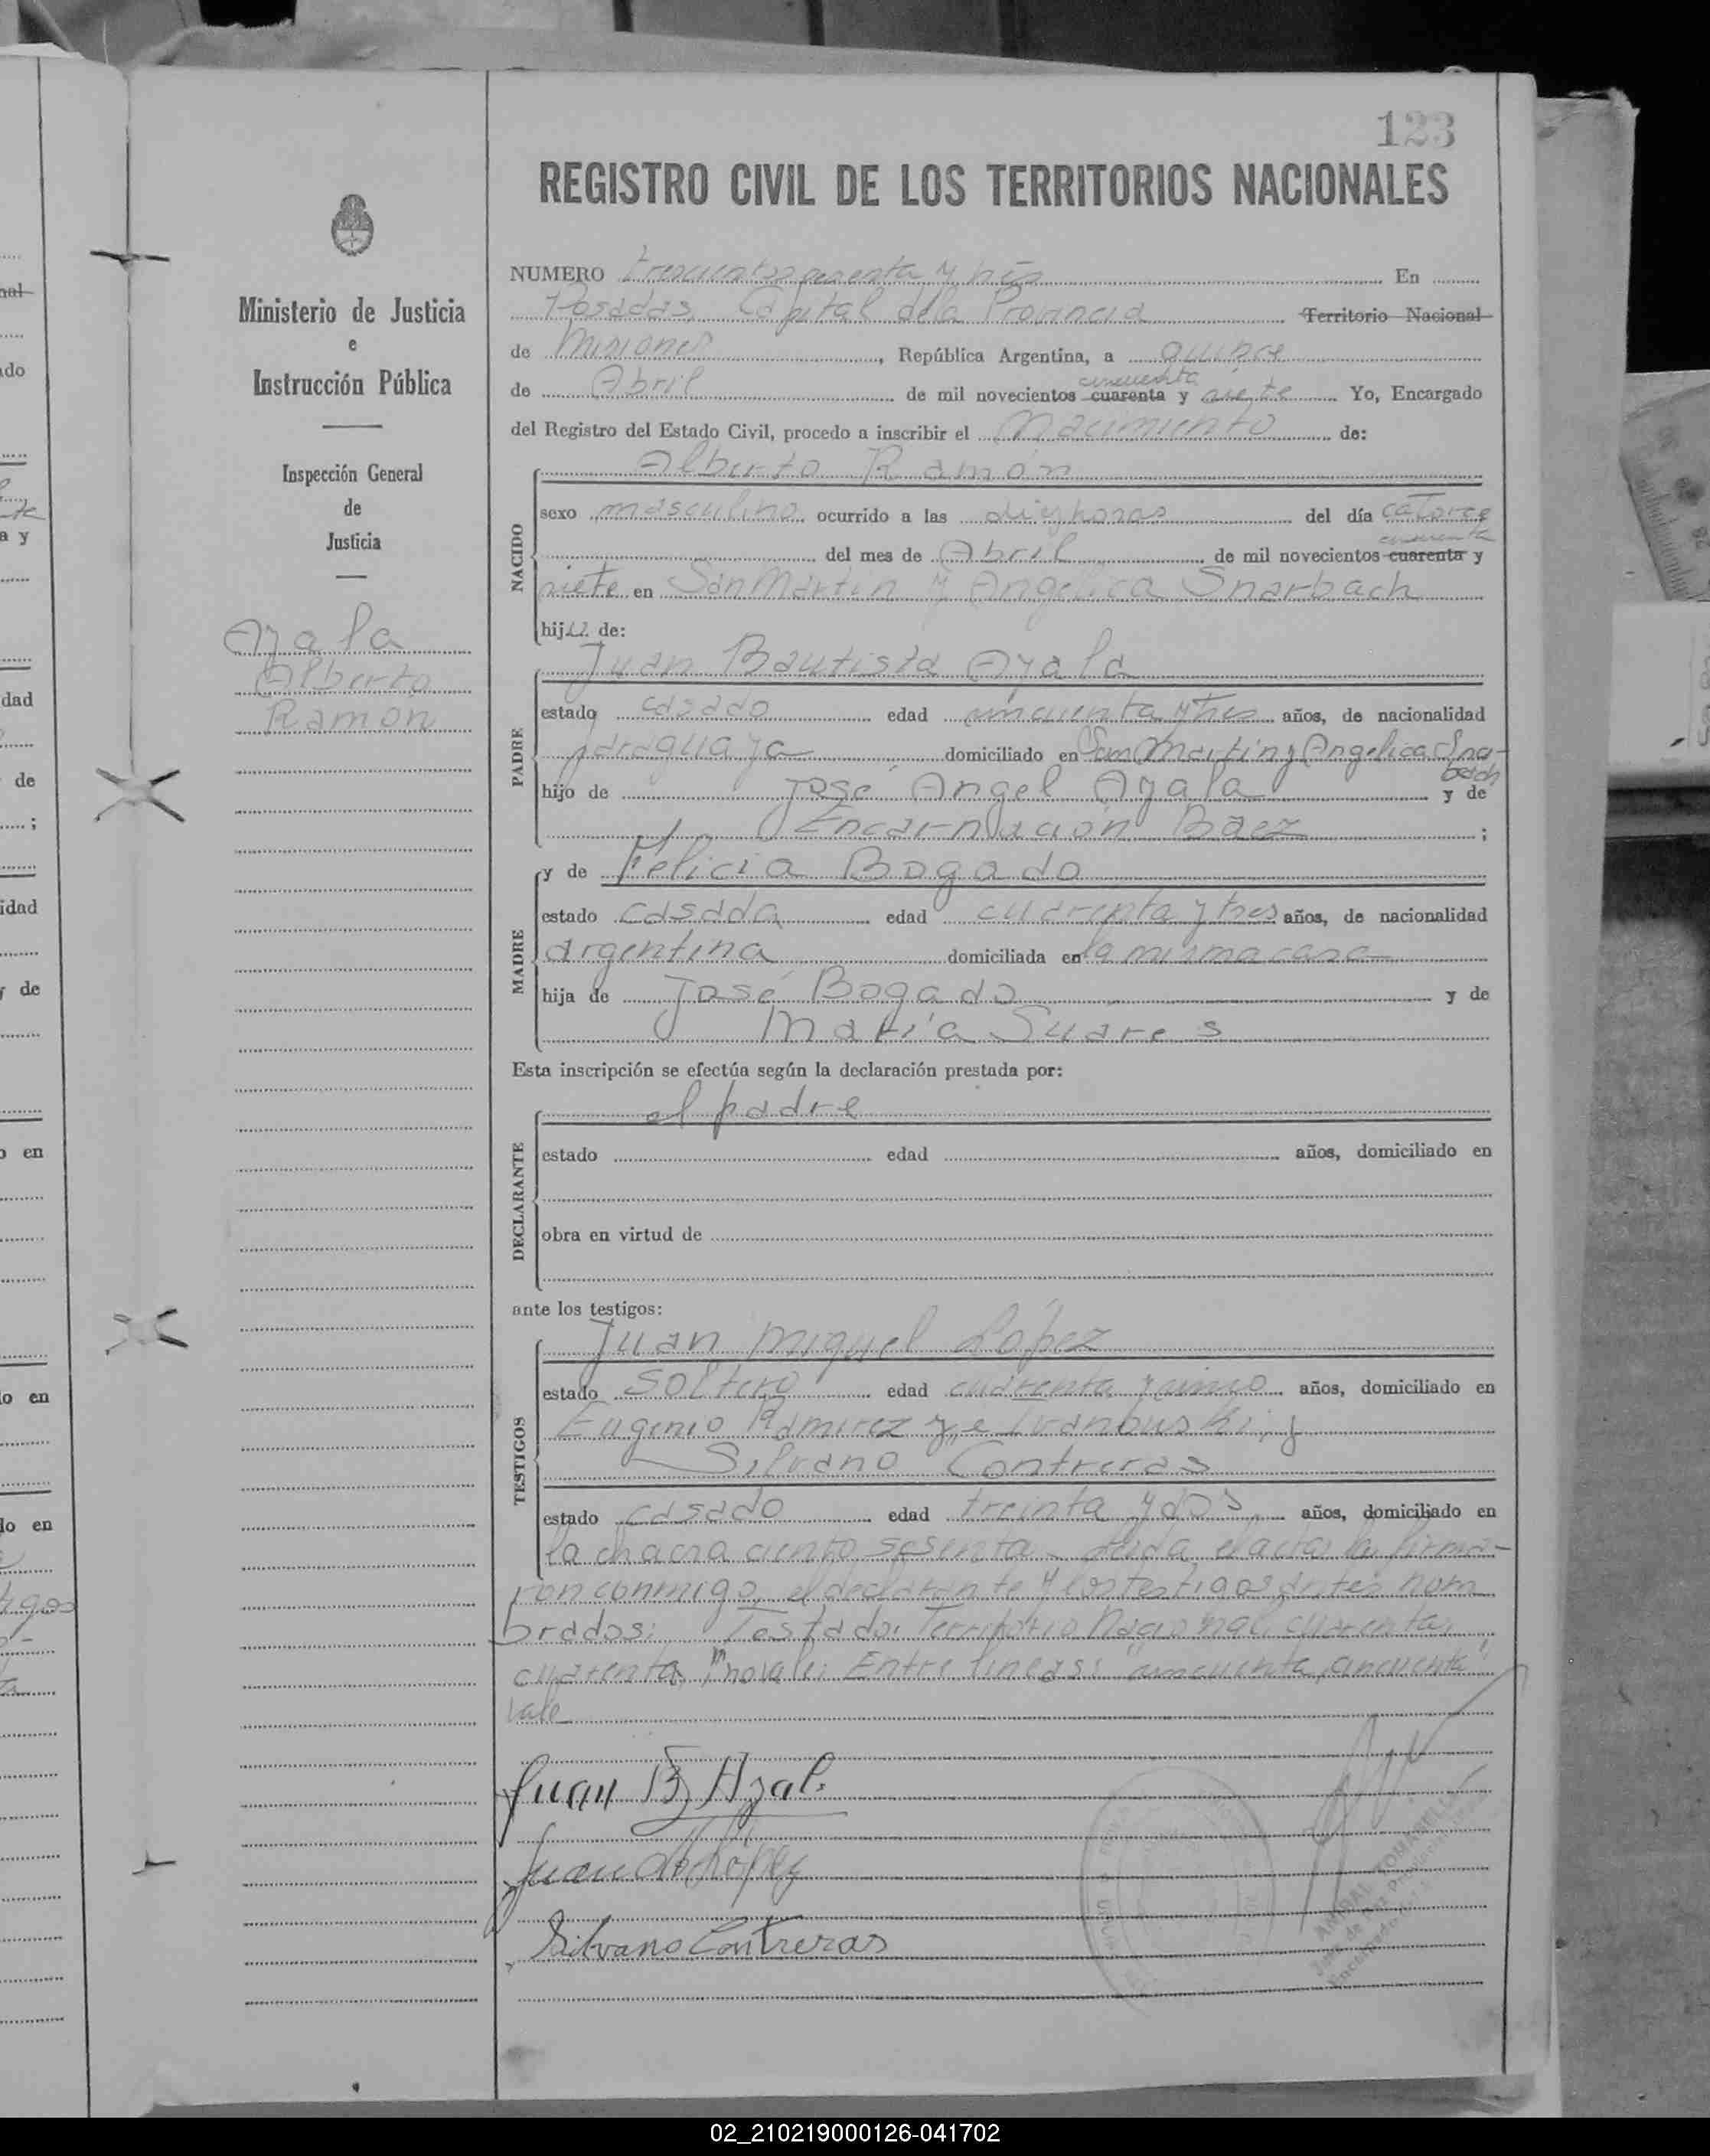 123
REGISTRO CIVIL DE LOS TERRITORIOS NACIONALES
Ministerio de Justicia
e
Instrucción Pública
Inspección General
de
Justicia
Ayala
Alberto
Ramon
NUMERO y tres En
Posadas, Capital de la Provincia Territorio Nacional
de Misiones, República Argentina, a quince
de Abril de mil novecientos cuarenta cincuenta y siete Yo, Encargado
del Registro del Estado Civil, procedo a inscribir el Nacimiento de:
NACIDO
Alberto Ramón
sexo masculino ocurrido a las diez horas del día catorce
del mes de Abril de mil novecientos cuarenta cincuenta y
siete en San Martin y Angelica Snarbach
hijo de:
PADRE
Juan Bautista Ayala
estado casado edad cincuenta y tres años, de nacionalidad
paraguaya domiciliado en San Martin y Angelica Sna-
bach
hijo de José Angel Ayala y de
Encarnación Baez ;
MADRE
y de Felicia Bogado
estado casada edad cuarenta y tres años, de nacionalidad
argentina domiciliada en la misma casa
hija de José Bogado y de
María Suares
Esta inscripción se efectúa según la declaración prestada por:
DECLARANTE
el padre
estado edad años, domiciliado en
obra en virtud de
ante los testigos:
TESTIGOS
Juan Miguel López
estado soltero edad cuarenta y cinco años, domiciliado en
Eugenio Ramirez y
Silvano Contreras
estado casado edad treinta y dos años, domiciliado en
la chacra ciento sesenta. Leida el acta la firma-
ron conmigo, el declarante y los testigos antes nom
brados: Testado: Territorio Nacional, cuarenta,
cuarenta, no vale: Entre lineas: "cincuenta, cincuenta"
vale
Juan B. Ayala
Juan M. López
Silvano Contreras
02_210219000126-041702